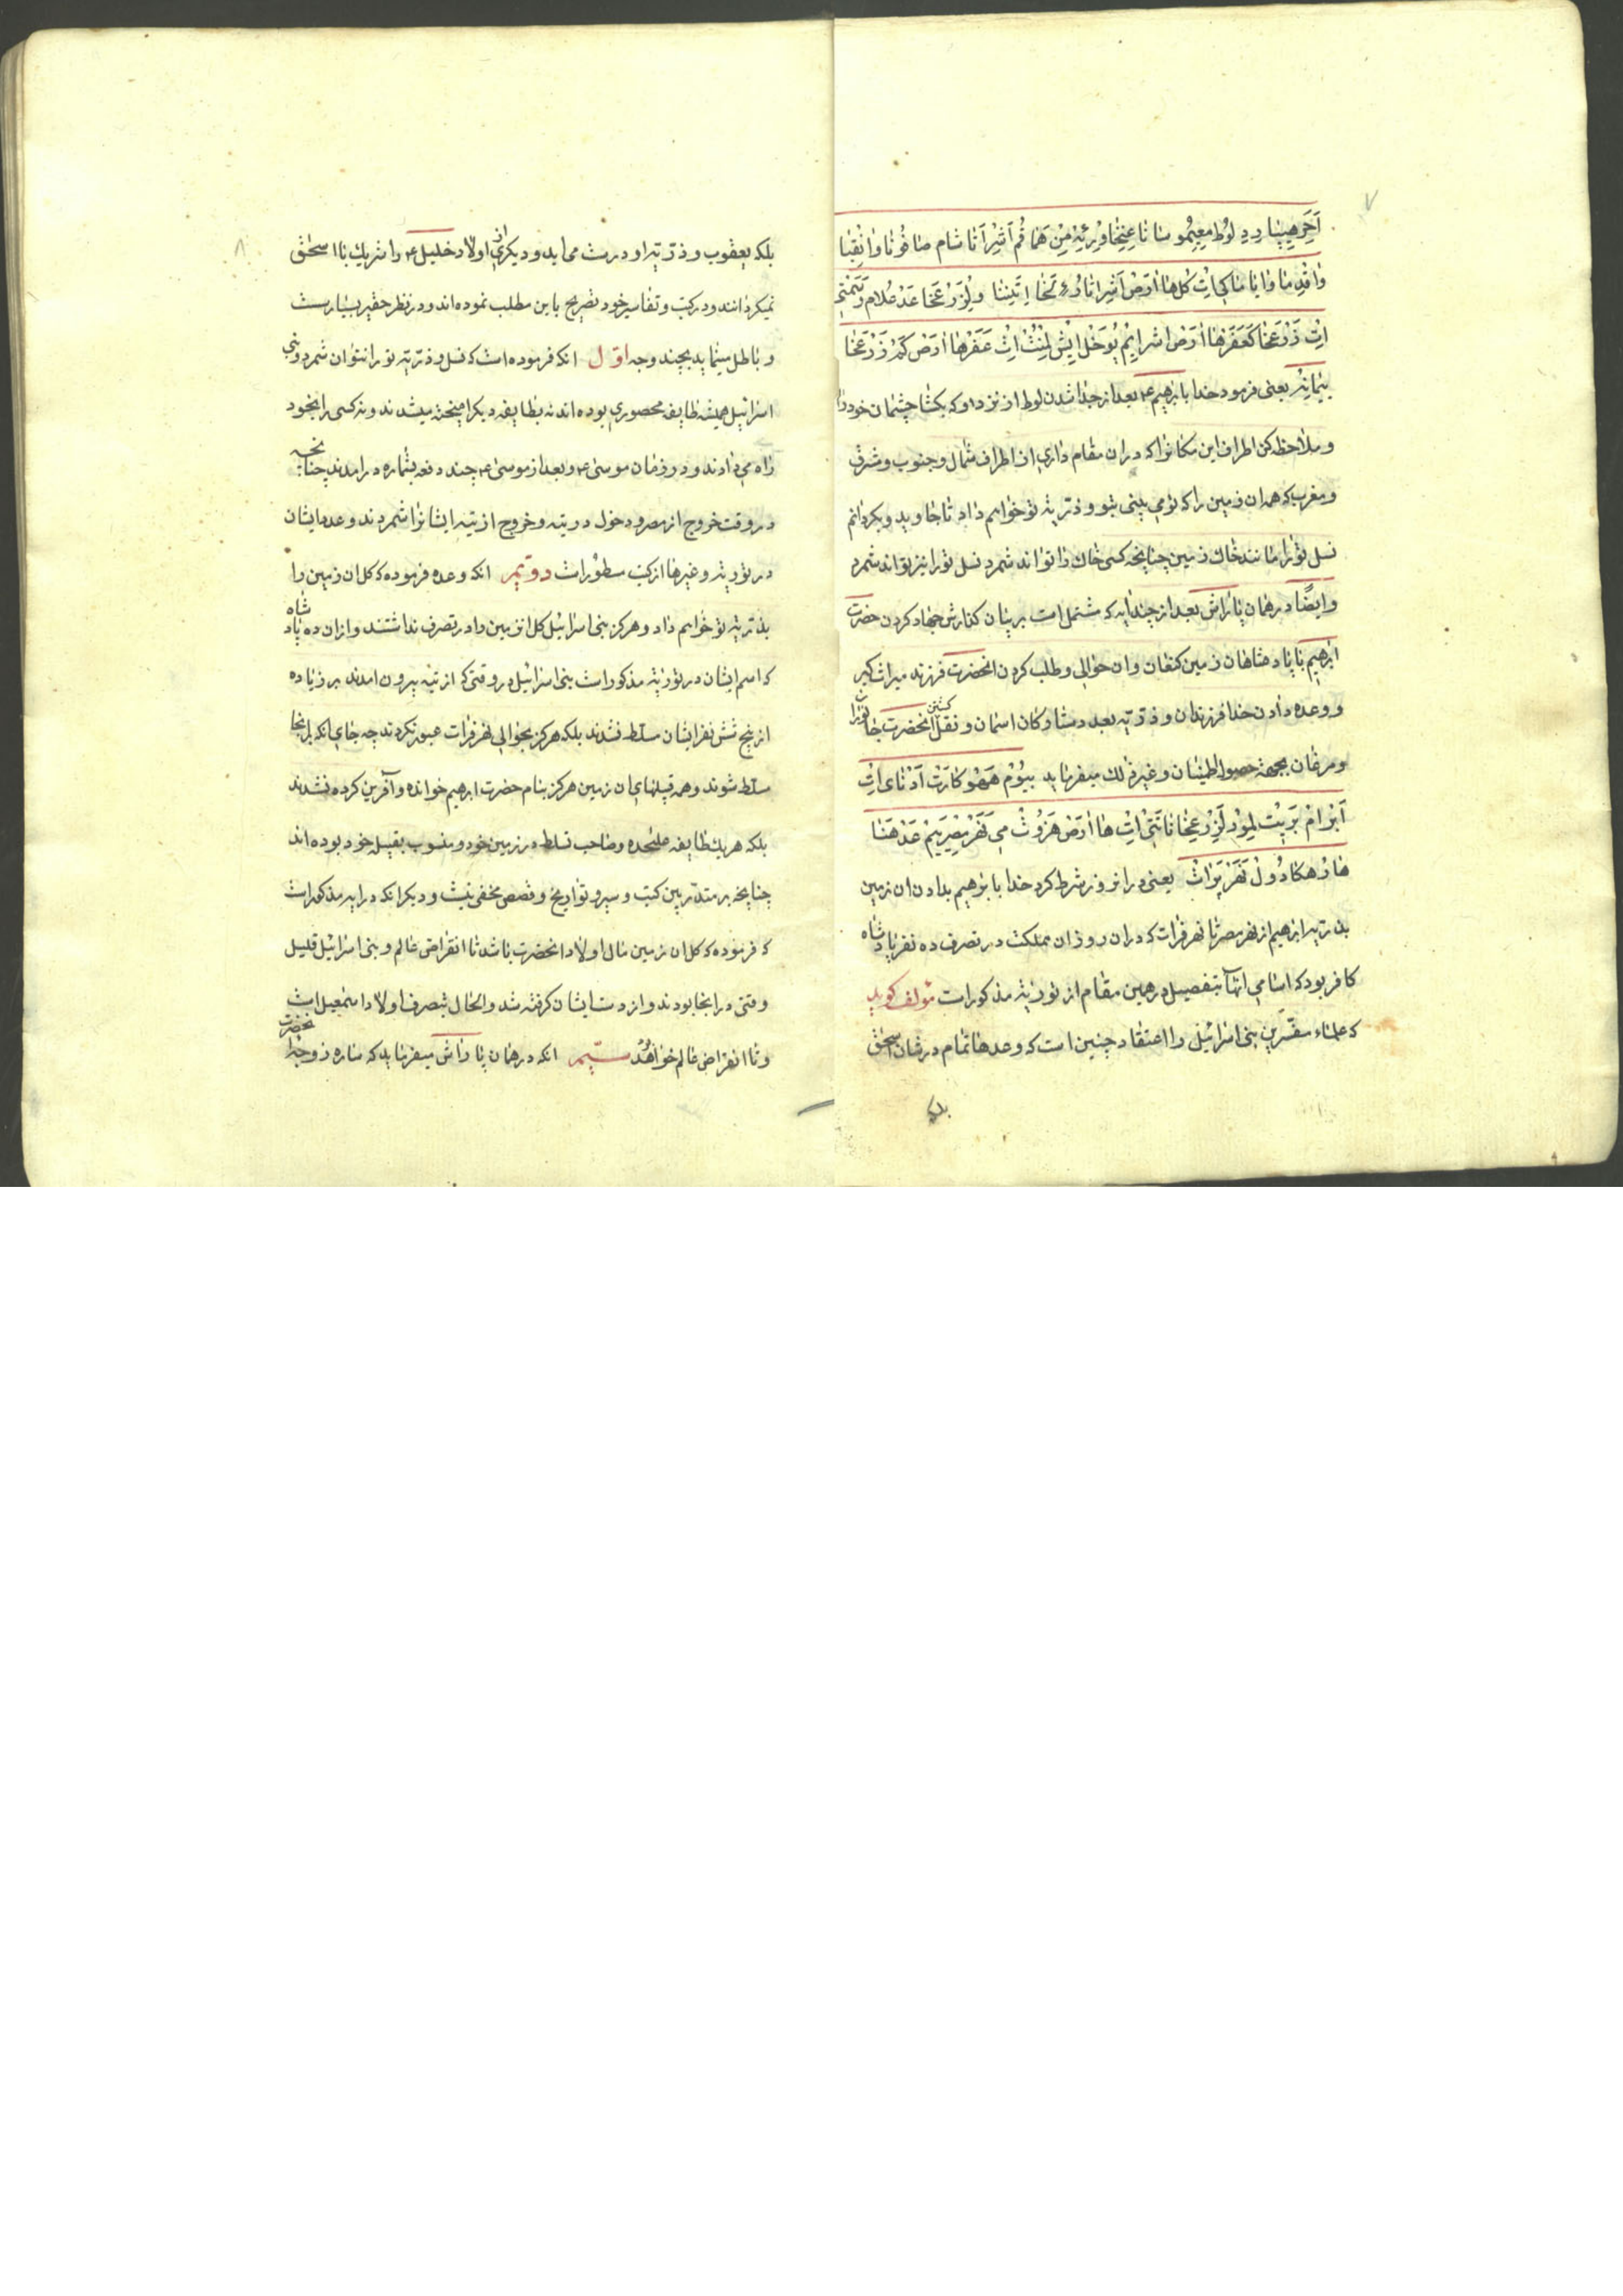 ۷
اَحَرِ هِيپٰارِد لُوط مَعِيمُو سٰا نٰا عِنِخٰا وُرِئِه مِنْ هَمٰا قُم آشِرْ آتٰا شٰام صٰافُونٰا وٰانِقبٰا
وٰاقِدِمٰا وٰايٰامٰا كي اِت كُل هٰا اٰرَصْ آشِر اتّٰا رُءِ لَخٰا اِتِننٰا وِلِزَرْعَخٰا عَدْ عُلام وَسَمْتي
اِت زَرْعَخٰا كَعَفَرْ هٰا اٰرَصْ اشر ايم يُوخَل ايشْ لِمْنُتْ اِتْ عَفَرْ هٰا اٰرَصْ گَمْ زَرْعَخٰا
يِمٰانِه يعنى فرمود خدا بابرهيم ع بعد از جدا شدن لوط از نزد او كه بكشا چشمان خود را
و ملاحظه كن اطراف اين مكانرا كه در ان مقام دارى از اطراف شمال و جنوب و شرق
و مغرب كه همه ان زمين را كه تو مى بينى بتو و ذريّه تو خواهم داد تا جاويد و بكردانم
نسل تو را مانند خاك زمين چنانچه كسى خاك را تواند شمرد نسل تو را نيز تواند شمرد
و ايضًا در همان پاراش بعد از چند ايه كه مشتمل است بر بيان كذارش جهاد كردن حضرت
ابرهيم با پادشاهان زمين كنعان و ان حوالى و طلب كردن انحضرت فرزند ميراث كير
و وعده دادن خدا فرزندان و ذريّه بعدد ستاركان اسمان و نقل كشتن انحضرت جانوران
و مرغان بجهة حصول اطمينان و غير ذلك ميفرمايد بيُوم هَهُو كارَتْ اَدُناى اِتْ
اَبْرامْ بَريتْ لِمُور لِزَرْعَخٰا نٰاتَتي اِتْ هٰا اٰرَصْ هَزُوتْ مي نَهَرْ مِصِرَيِمْ عَدْ هَنٰا
هٰارْ هَكادُولْ نَهَرْ پَراتْ يعنى در انروز شرط كرد خدا بابرهيم بدادن ان زمين
بذريّه ابرهيم از نهر مصر تا نهر فرات كه در ان روز ان مملكت در تصرف ده نفر پادشاه
كافر بود كه اسامى انها بتفصيل در همين مقام از تورية مذكور است مؤلف كويد
كه علماء مفسّرين بنى اسرائيل را اعتقاد چنين است كه وعدها تمام در شان اسحق
بلكه
۸
بلكه يعقوب و ذريّه او درست مى ايد و ديكرى از اولاد خليل ع را شريك با اسحق
نميكردانند و در كتب و تفاسير خود تصريح باين مطلب نموده اند و در نظر حقير بسيار سست
و باطل مينمايد بچند وجه اوّل انكه فرموده است كه نسل و ذريّه تو را نتوان شمرد و بنى
اسرائيل هميشه طايفه محصورى بوده اند نه بطايفه ديكر اميخته ميشدند و نه كسى را بخود
راه مى دادند و در زمان موسى ع و بعد از موسى ع چند دفعه بشماره در امدند چنانچه
در وقت خروج از مصر و دخول در تيه و خروج از تيه ايشانرا شمردند و عدد ايشان
در تورية و غيرها از كتب مسطور است دويّم انكه وعده فرموده كه كل ان زمين را
بذريّه تو خواهم داد و هركز بنى اسرائيل كل ان زمين را در تصرف نداشتند و از ان ده پادشاه
كه اسم ايشان در تورية مذكور است بنى اسرائيل در وقتى كه از تيه بيرون امدند بر زياده
از پنج شش نفر ايشان مسلط نشدند بلكه هركز بحوالى نهر فرات عبور نكردند چه جاى انكه بر انجا
مسلط شوند و همه قبيلهاى ان زمين هركز بنام حضرت ابرهيم خوانده و آفرين كرده نشدند
بلكه هر يك طايفه عليحده و صاحب تسلط در زمين خود و منسوب بقبيله خود بوده اند
چنانچه بر متدبّرين كتب و سير و تواريخ و قصص مخفى نيست و ديكر انكه در ايه مذكور است
كه فرموده كه كل ان زمين مال اولاد انحضرت باشد تا انقراض عالم و بنى اسرائيل قليل
وقتى در انجا بودند و از دست ايشان كرفته شد و الحال بتصرف اولاد اسمعيل است
و تا انقراض عالم خواهد بود سيّم انكه در همان پاراش ميفرمايد كه ساره زوجه انحضرت